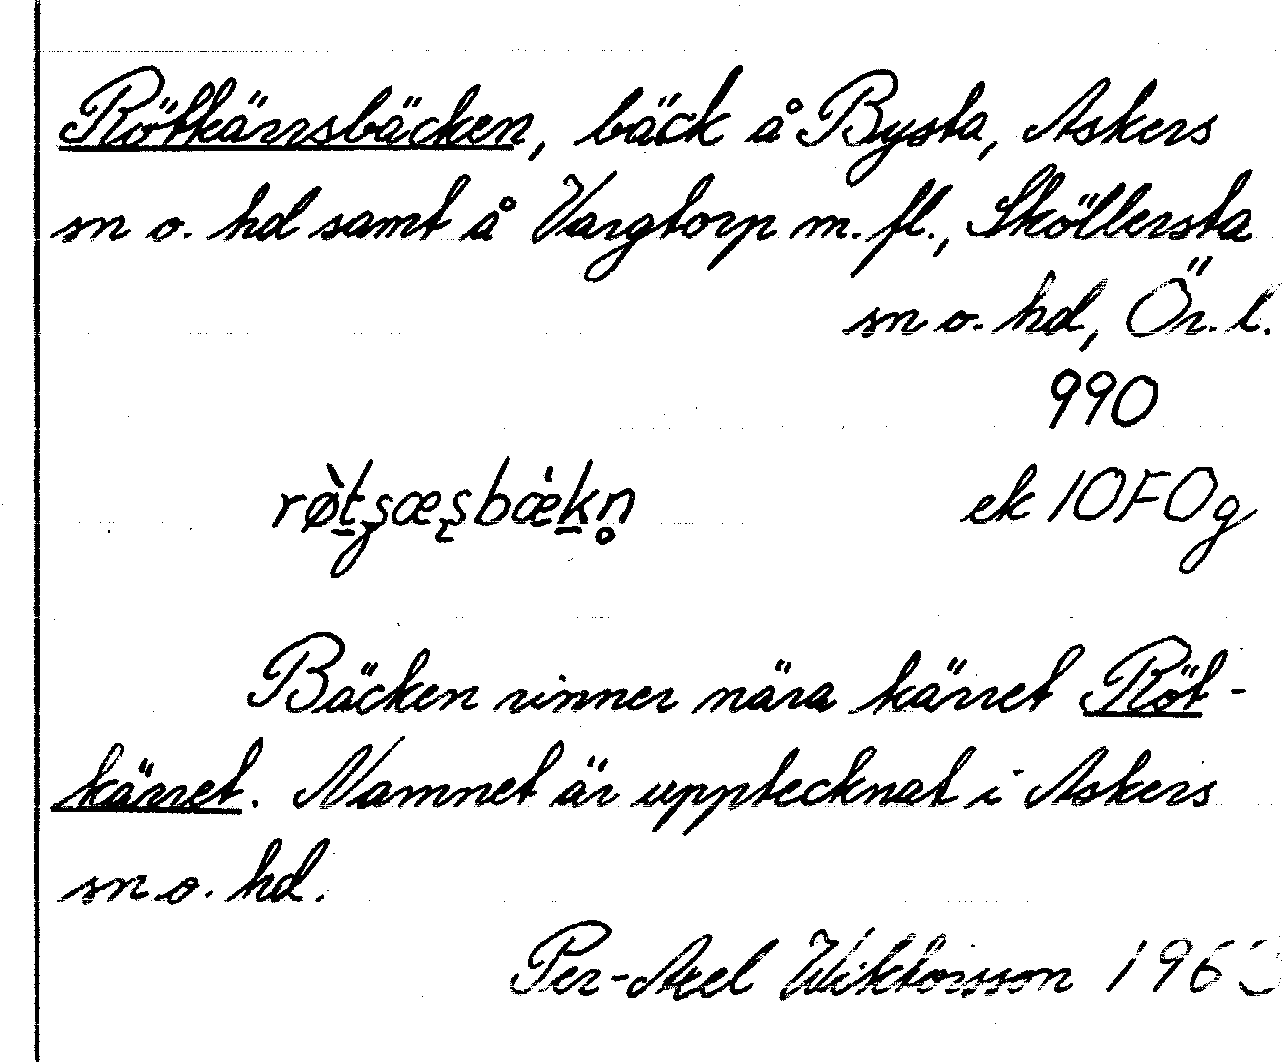 Rötkärrsbäcken, bäck å Bysta, Askers
sn o. hd samt å Vargtorp m. fl., Sköllersta
sn o. hd, Ör. l.
990
rø̀t̠ʂæʂbæ̍k̠n̥
ek 10F0g
Bäcken rinner nära kärret Röt-
kärret. Namnet är upptecknat i Askers
sn o. hd.
Per-Axel Wiktorsson 1963